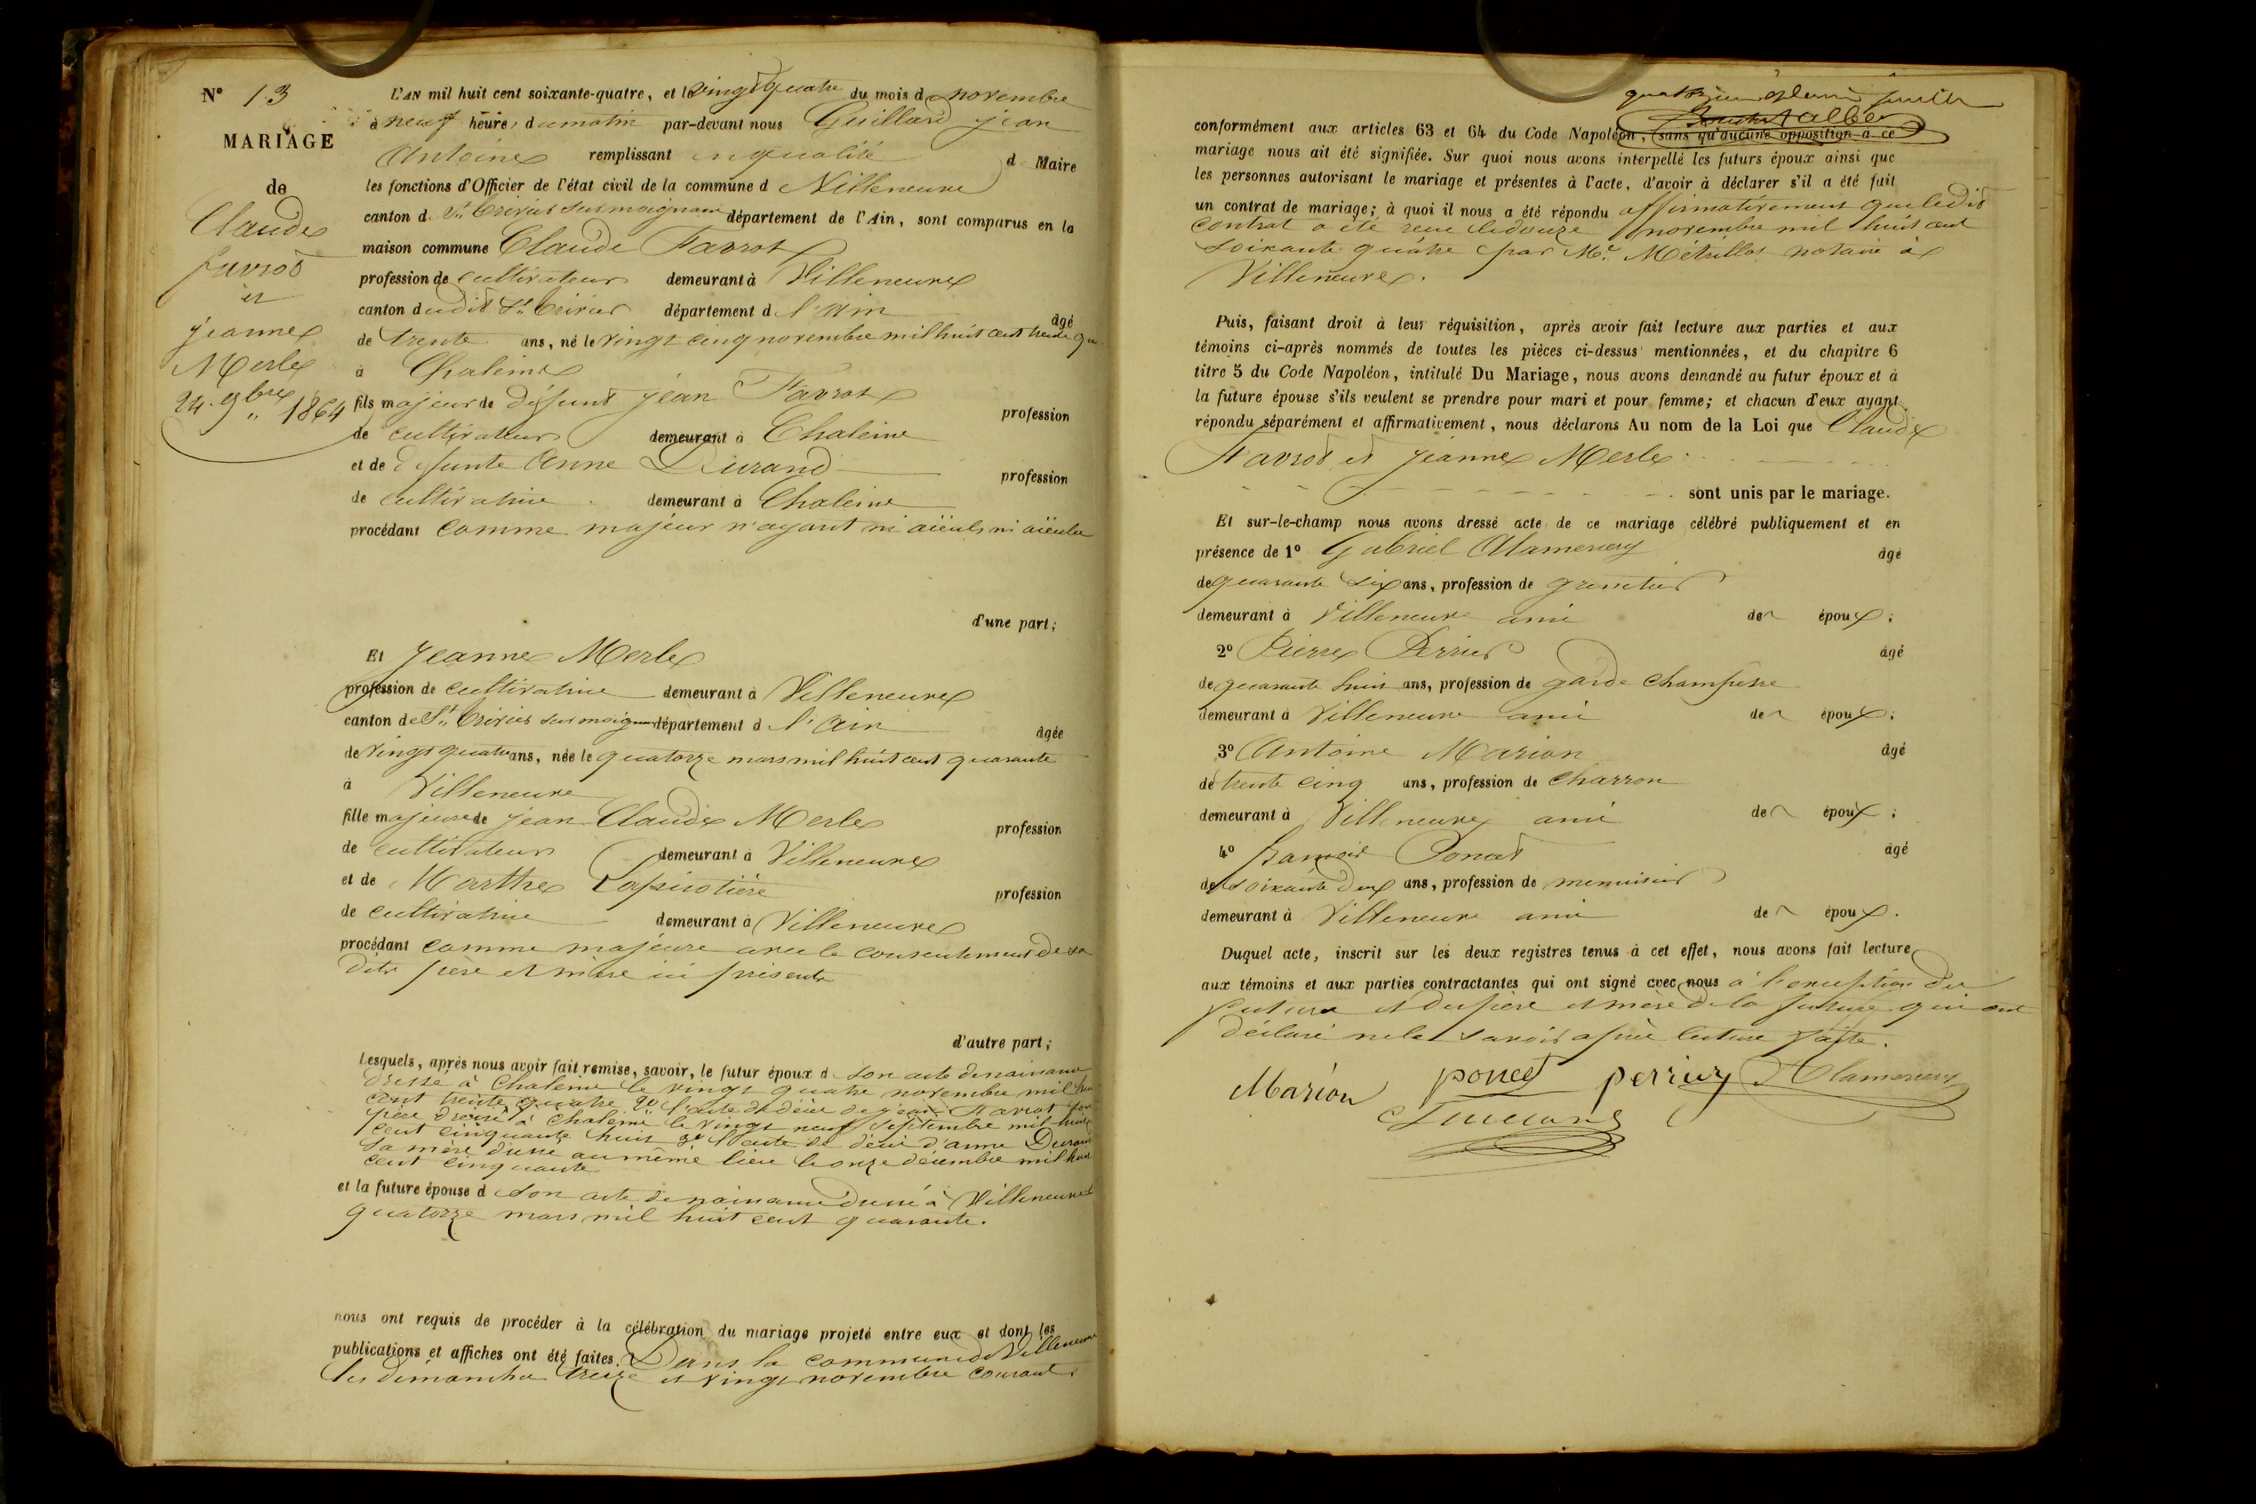 N° 13
MARIAGE
de
Claude
favrot
et
jeanne
Merle
24 9bre 1864
L'AN mil huit cent soixante-quatre, et le vingt quatre du mois de novembre
à neuf heures du matin par-devant nous Guillard jean
Antoine remplissant en qualité d Maire
les fonctions d'Officier de l'état civil de la commune d Villeneuve
canton d St trivier sur moignans département de l'Ain, sont comparus en la
maison commune Claude Favrot
profession de cultivateur demeurant à Villeneuve
canton dudit St trivier département d l'Ain âgé
de trente ans, né le vingt cinq novembre mil huit cent trente qu
à Chaleine
fils majeur de défunt jean Favrot profession
de cultivateur demeurant à Chaleine
et de defunte Anne Durand profession
de cultivatrice demeurant à Chaleine
procédant comme majeur n'ayant ni aïeuls ni aïeules
d'une part;
Et jeanne Merle
profession de cultivatrice demeurant à Villeneuve
canton de St trivier sur moignans département d l'Ain âgée
de vingt quatre ans, née le quatorze mars mil huit cent quarante
à Villeneuve
fille majeure de jean Claude Merle profession
de cultivateur demeurant à Villeneuve
et de Marthe Lapicotière profession
de cultivatrice demeurant à Villeneuve
procédant comme majeure avec le consentement de sa
dits père et mère ici présents
d'autre part;
Lesquels, après nous avoir fait remise, savoir, le futur époux d son acte de naissance
dressé à Chaleine le vingt quatre novembre mil hui
cent trente quatre 2° l'acte de décès de jean Favrot son
père dressé à Chaleine le vingt neuf septembre mil huit
cent cinquante huit 3° l'acte de décès d'anne Durand
sa mère dressé au même lieu le onze décembre mil huit
cent cinquante
et la future épouse d son acte de naissance dressé à Villeneuve
quatorze mars mil huit cent quarante.
nous ont requis de procéder à la célébration du mariage projeté entre eux et dont les
publications et affiches ont été faites. Dans la commune de Villeneuve
les dimanches treize et vingt novembre courant
conformément aux articles 63 et 64 du Code Napoléon, sans qu'aucune opposition à ce
mariage nous ait été signifiée. Sur quoi nous avons interpellé les futurs époux ainsi que
les personnes autorisant le mariage et présentes à l'acte, d'avoir à déclarer s'il a été fait
un contrat de mariage; à quoi il nous a été répondu affirmativement que ledit
contrat a été reçu le douze novembre mil huit cent
soixante quatre par Me Métrillot notaire à
Villeneuve.
Puis, faisant droit à leur réquisition, après avoir fait lecture aux parties et aux
témoins ci-après nommés de toutes les pièces ci-dessus mentionnées, et du chapitre 6
titre 5 du Code Napoléon, intitulé Du Mariage, nous avons demandé au futur époux et à
la future épouse s'ils veulent se prendre pour mari et pour femme; et chacun d'eux ayant
répondu séparément et affirmativement, nous déclarons Au nom de la Loi que Claude
Favrot et jeanne Merle
sont unis par le mariage.
Et sur-le-champ nous avons dressé acte de ce mariage célébré publiquement et en
présence de 1° Gabriel Alamercery âgé
de quarante six ans, profession de
demeurant à Villeneuve ami des époux;
2° Pierre Perrier âgé
de quarante huit ans, profession de garde champêtre
demeurant à Villeneuve ami des époux;
3° Antoine Marion âgé
de trente cinq ans, profession de Charron
demeurant à Villeneuve ami des époux;
4° francois Poncet âgé
de soixante deux ans, profession de menuisier
demeurant à Villeneuve ami des époux.
Duquel acte, inscrit sur les deux registres tenus à cet effet, nous avons fait lecture
aux témoins et aux parties contractantes qui ont signé avec nous à l'exception des
futurs et des père et mère de la future qui ont
déclaré ne le savoir après lecture faite.
Marion poncet perrier Alamercery